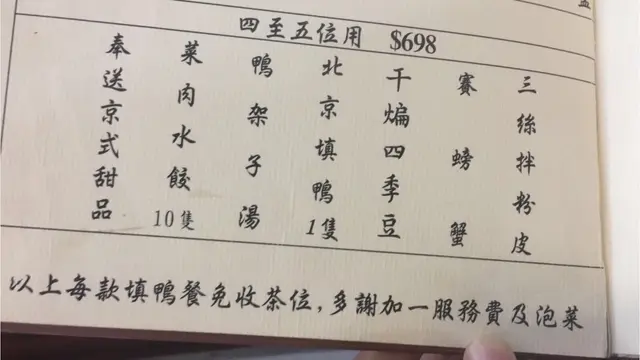 四至五位用 $698
三絲拌粉皮
賽螃蟹
干煸四季豆
北京填鴨1隻
鴨架子湯
菜肉水餃10隻
奉送京式甜品
以上每款填鴨餐免收茶位,多謝加一服務費及泡菜